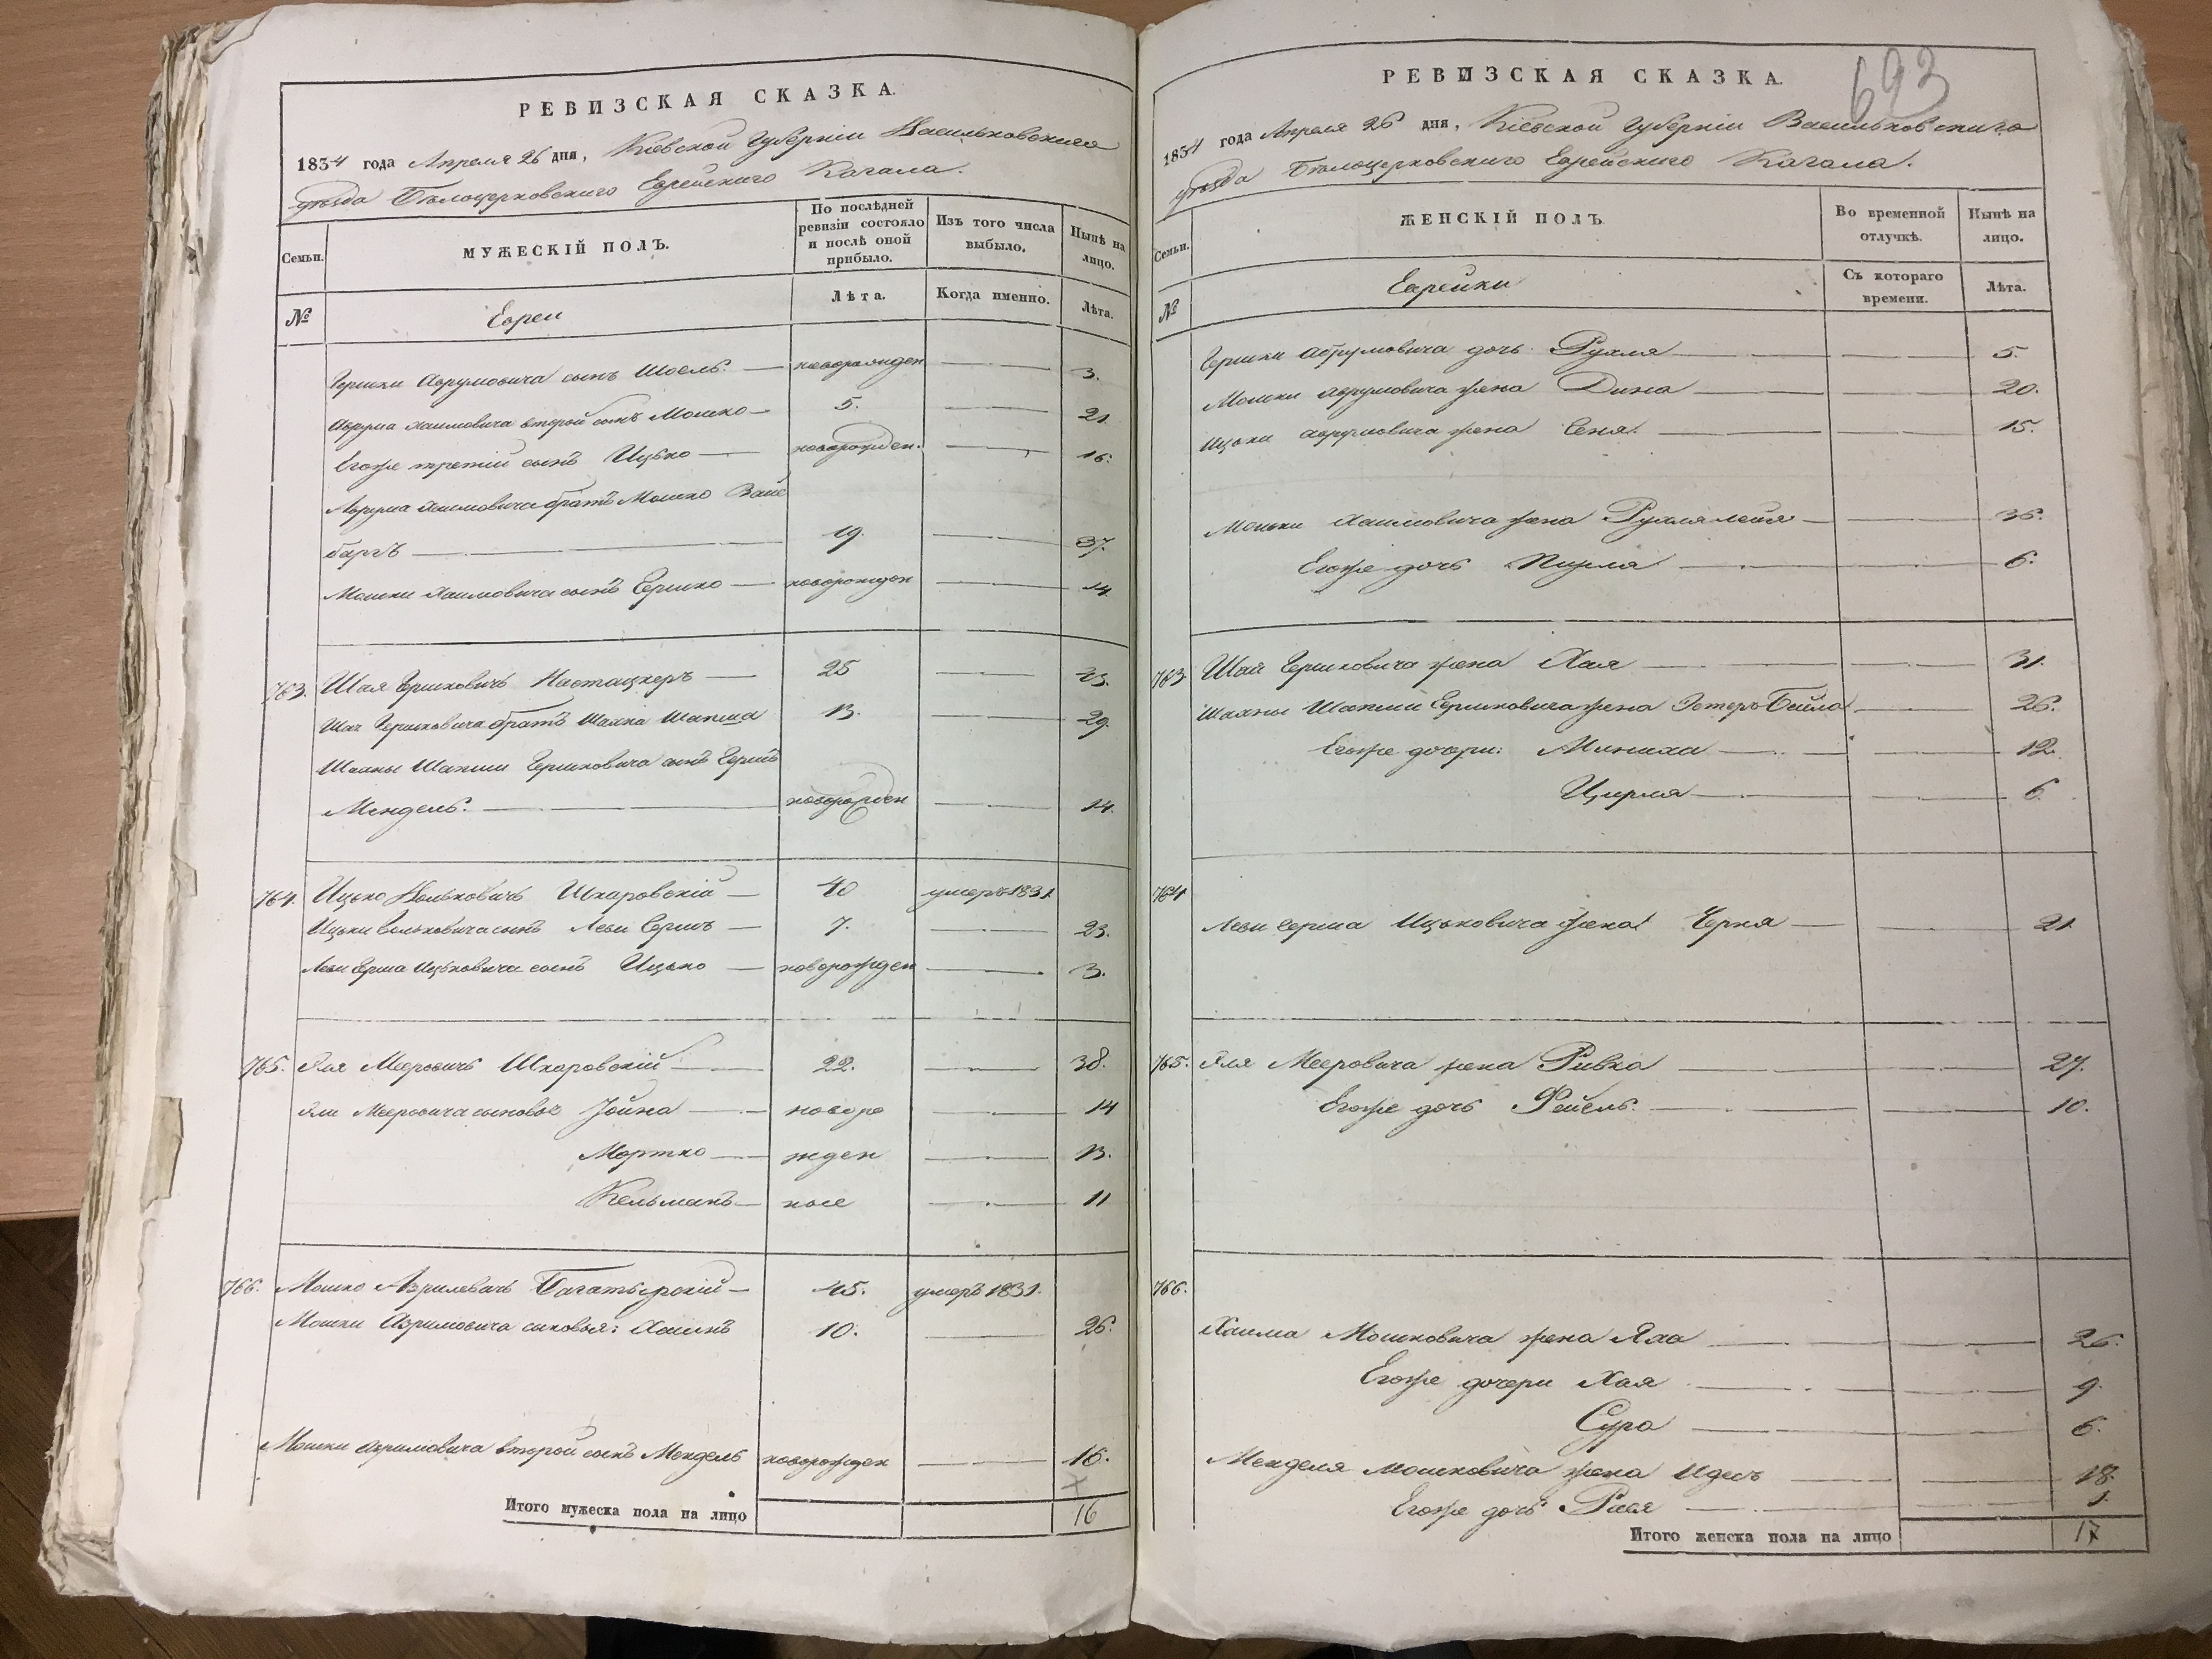 РЕВИЗСКАЯ СКАЗКА.
1834 года Апреля 26 дня, Кіевской Губерніи Васильковскаго
уѣзда Бѣлоцерковскаго Еврейскаго Кагала.
Семьи.
МУЖЕСКІЙ ПОЛЪ.
По послѣдней ревизіи состояло и послѣ оной прибыло.
Изъ того числа выбыло.
Нынѣ на лицо.
№
Евреи
Лѣта.
Когда именно.
Лѣта.
Гершки Аврумовича сынъ Шоель — новорожден — 3.
Аврума Хаимовича второй сынъ Мошко — 5. — 21
Егоже третій сынъ Ицько — новорожден. — 16.
Аврума Хаимовича братъ Мошко Вайс
баргъ — 19. — 37.
Мошки Хаимовича сынъ Гершко — новорожден — 14
763. Шая Гершковичъ — 25
Шаи Гершковича братъ Шахна Шапша — 13. — 29.
Шахны Шапши Гершковича сынъ Герш
Мендель. — новорожден — 14.
764. Ицько Вольковичъ Шкаровскій — 40 умеръ 1831.
Ицьки Вольковича сынъ Леви Гершъ — 7. — 23.
Леви Герша Ицьковича сынъ Ицько — новорожден — 3.
765. Яля Мееровичъ Шкаровскій — 22. — 38.
Яли Мееровича сыновья Іойна — новоро — 14
Мортко — жден — 13.
Кельманъ — ные — 11
766. Мошко Азрилевичъ Багатырскій — 45. умеръ 1831.
Мошки Азрилевича сыновья: Хаимъ 10. — 26.
Мошки Азрилевича второй сынъ Мендель новорожден — 16.
Итого мужеска пола на лицо 16
693
РЕВИЗСКАЯ СКАЗКА.
1834 года Апреля 26 дня, Кіевской Губерніи Васильковскаго
уѣзда Бѣлоцерковскаго Еврейскаго Кагала.
Семьи.
ЖЕНСКІЙ ПОЛЪ.
Во временной отлучкѣ.
Нынѣ на лицо.
№
Еврейки
Съ котораго времени.
Лѣта.
Гершки Аврумовича дочь Рухля — 5.
Мошки Аврумовича жена Дина — 20.
Ицьки Аврумовича жена Сеня — 15.
Мошки Хаимовича жена Рухля лея — 36.
Егоже дочь Пирля — 6.
763 Шаи Гершковича жена Хая — 31.
Шахны Шапши Гершковича жена Эстеръ Бейла — 26.
Егоже дочери: Миниха — 12.
Цирля — 6.
764
Леви Герша Ицьковича жена Черня — 21
765. Яля Мееровича жена Ривка — 27.
Егоже дочь Фейель. — 10.
766.
Хаима Мошковича жена Яха — 26.
Егоже дочери Хая — 9.
Сура — 6.
Менделя Мошковича жена Идесъ — 18.
Егоже дочь — 1.
Итого женска пола на лицо 17